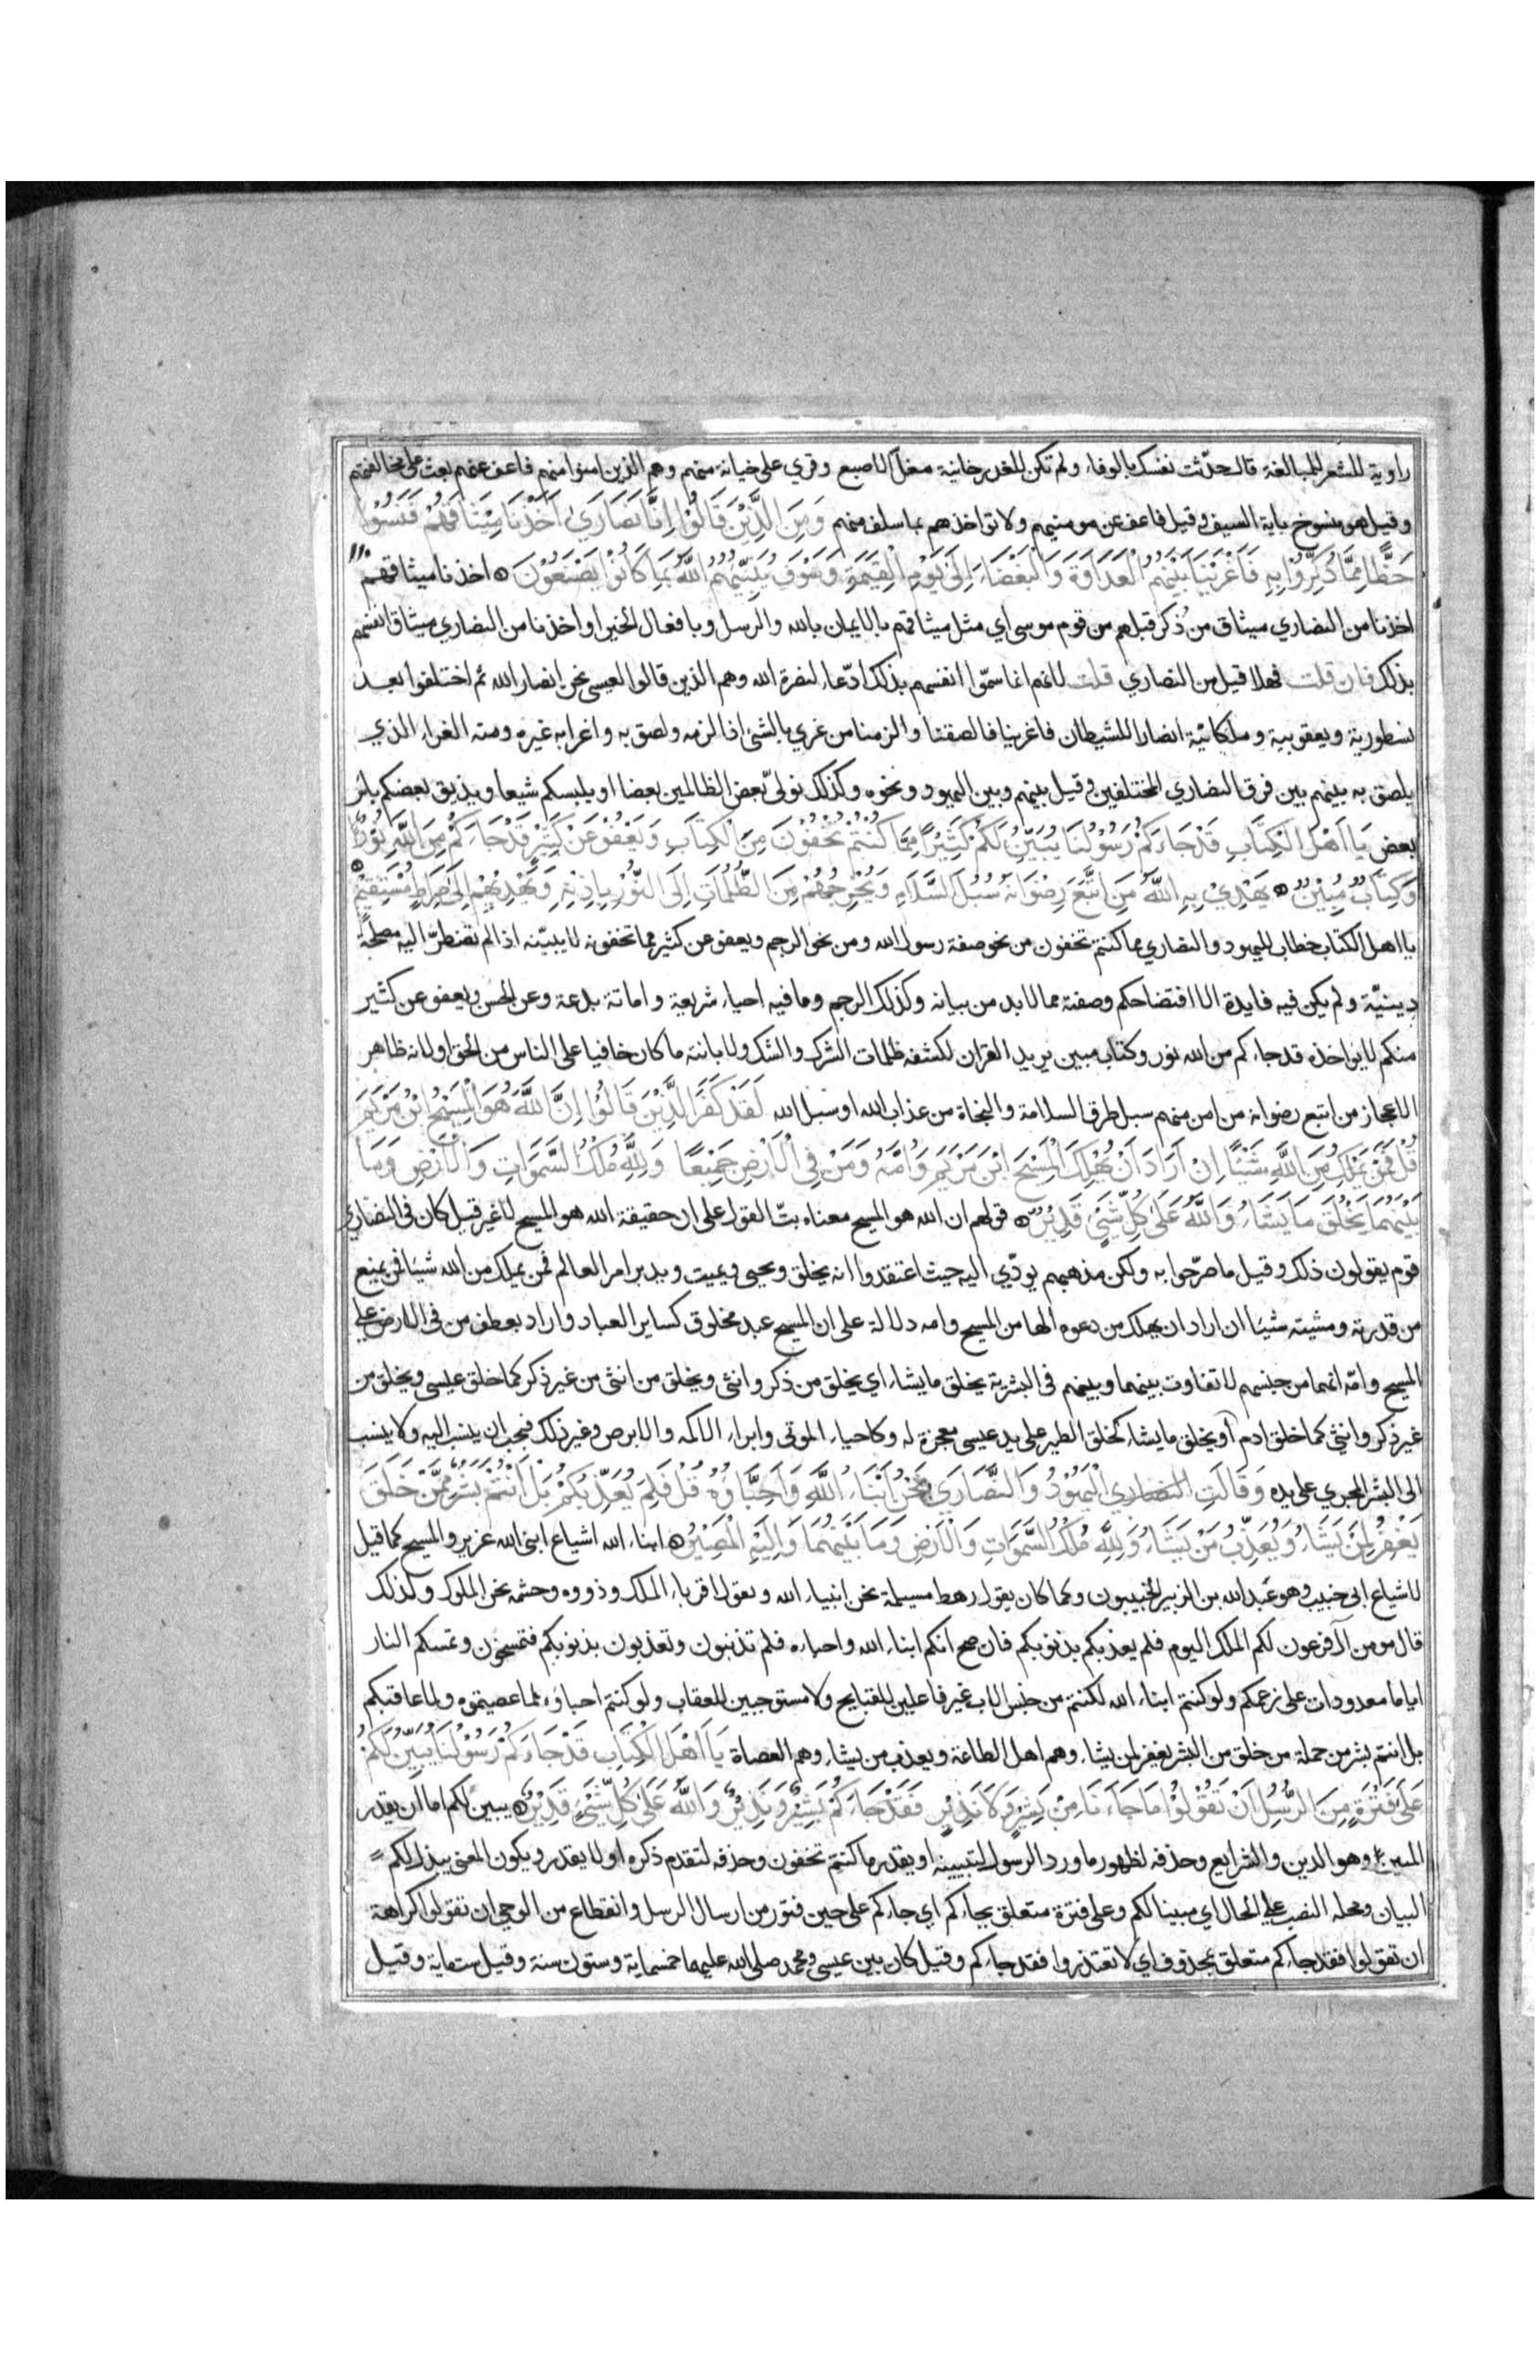 راوية للشعر للمبالغة قال حدّثت نفسك بالوفاء ولم تكن للغدر خاينة مغل الاصبع وقري على خيانة منهم وهم الذين امنوا منهم فاعف عنهم بعث على مخالفتهم
وقيل هو منسوخ باية السيف وقيل فاعف عن مومنيهم ولا تواخذهم بما سلف منهم وَمِنَ الَّذِيْنَ قَالُوْا اِنَّا نَصَارَى اَخَذْنَا مِيْثَاقَهُمْ فَنَسُوْا
حَظًّا مِمَّا ذُكِّرُوْا بِهِ فَاَغْرَيْنَا بَيْنَهُمُ الْعَدَاوَةَ وَالْبَغْضَاءَ اِلَى يَوْمِ الْقِيمَةِ وَسَوْفَ يُنَبِّئُهُمُ اللَّهُ بِمَا كَانُوْا يَصْنَعُوْنَ اخذنا ميثاقهم
اخذنا من النصاري ميثاق من ذُكر قبلهم من قوم موسى اي مثل ميثاقهم بالايمان بالله والرسل وبافعال الخير او اخذنا من النصاري ميثاق انفسهم
بذلك فان قلت فهلا قيل من النصاري قلت لانهم انما سمّوا انفسهم بذلك ادّعاء لنصرة الله وهم الذين قالوا لعيسى نحن انصار الله ثم اختلفوا بعد
نسطورية ويعقوبية وملكانيّة انصارا للشيطان فاغرينا فالصقنا والزمنا من غري بالشئ اذا لزمه ولصق به واغرابه غيره ومنه الغراء الذي
يلصق به بينهم بين فرق النصاري المختلفين وقيل بينهم وبين اليهود ونحوه وكذلك نولّي بعض الظالمين بعضا او يلبسكم شيعا ويذيق بعضكم باس
بعض يَا اَهْلَ الْكِتَابِ قَدْ جَاءَكُمْ رَسُوْلُنَا يُبَيِّنُ لَكُمْ كَثِيْرًا مِمَّا كُنْتُمْ تُخْفُوْنَ مِنَ الْكِتَابِ وَيَعْفُوْ عَنْ كَثِيْرٍ قَدْ جَاءَكُمْ مِنَ اللَّهِ نُوْرٌ
وَكِتَابٌ مُبِيْنٌ يَهْدِيْ بِهِ اللَّهُ مَنِ اتَّبَعَ رِضْوَانَهُ سُبُلَ السَّلَامِ وَيُخْرِجُهُمْ مِنَ الظُّلُمَاتِ اِلَى النُّوْرِ بِاِذْنِهِ وَيَهْدِيْهِمْ اِلَى صِرَاطٍ مُسْتَقِيْمٍ
يا اهل الكتاب خطاب لليهود والنصاري مما كنتم تخفون من نحو صفة رسول الله ومن نحو الرجم ويعفو عن كثير مما تخفونه لا يبيّنه اذا لم تضطرّ اليه مصلحة
دينيّة ولم يكن فيه فايدة الا افتضاحكم وصفته مما لابد من بيانه وكذلك الرجم وما فيه احياء شريعة واماتة بدعة وعن الحسن ويعفو عن كثير
منكم لا يواخذه قد جاءكم من الله نور وكتاب مبين يريد القران لكشفه ظلمات الشرك والشك ولا بانته ما كان خافيا على الناس من الحق او لانه ظاهر
الاعجاز من اتبع رضوانه من امن منهم سبل طرق السلامة والنجاة من عذاب الله او سبل الله لَقَدْ كَفَرَ الَّذِيْنَ قَالُوْا اِنَّ اللَّهَ هُوَ الْمَسِيْحُ ابْنُ مَرْيَمَ
قُلْ فَمَنْ يَمْلِكُ مِنَ اللَّهِ شَيْئًا اِنْ اَرَادَ اَنْ يُهْلِكَ الْمَسِيْحَ ابْنَ مَرْيَمَ وَاُمَّهُ وَمَنْ فِي الْاَرْضِ جَمِيْعًا وَلِلَّهِ مُلْكُ السَّمَوَاتِ وَالْاَرْضِ وَمَا
بَيْنَهُمَا يَخْلُقُ مَا يَشَاءُ وَاللَّهُ عَلَى كُلِّ شَيْئٍ قَدِيْرٌ قولهم ان الله هو المسيح معناه بتّ القول على ان حقيقة الله هو المسيح لا غير قيل كان في النصاري
قوم يقولون ذلك وقيل ما صرّحوا به ولكن مذهبهم يودّي اليه حيث اعتقدوا انه يخلق ويحيى ويميت ويدبر امر العالم فمن يملك من الله شيئا فمن يمنع
من قدرته ومشيته شيئا ان اراد ان يهلك من دعوه الها من المسيح وامه دلالة على ان المسيح عبد مخلوق كساير العباد واراد بعطف من في الارض على
المسيح وامّه انهما من جنسهم لا تفاوت بينهما وبينهم في البشرية يخلق ما يشاء اي يخلق من ذكر وانثى ويخلق من انثى من غير ذكر كما خلق عيسى ويخلق من
غير ذكر وانثى كما خلق ادم او يخلق ما يشاء كخلق الطير على يد عيسى معجزة له وكاحياء الموتى وابراء الاكمه والابرص وغير ذلك فيجب ان ينسب اليه ولا ينسب
الى البشر المجري على يده وَقَالَتِ النصاري الْيَهُوْدُ وَالنَّصَارَي نَحْنُ اَبْنَاءُ اللَّهِ وَاَحِبَّاؤُهُ قُلْ فَلِمَ يُعَذِّبُكُمْ بَلْ اَنْتُمْ بَشَرٌ مِمَّنْ خَلَقَ
يَغْفِرُ لِمَنْ يَشَاءُ وَيُعَذِّبُ مَنْ يَشَاءُ وَلِلَّهِ مُلْكُ السَّمَوَاتِ وَالْاَرْضِ وَمَا بَيْنَهُمَا وَاِلَيْهِ الْمَصِيْرُ ابناء الله اشياع ابنى الله عزير والمسيح كما قيل
لاشياع ابى خبيب وهو عبد الله بن الزبير الخبيبون وكما كان يقول رهط مسيلمة نحن انبياء الله ويقول اقرباء الملك وذووه وحشمه نحن الملوك وكذلك
قال مومن ال فرعون لكم الملك اليوم فلم يعذبكم بذنوبكم فان صح انكم ابناء الله واحباءه فلم تذنبون وتعذبون بذنوبكم فتمسخون وتمسكم النار
اياما معدودات على زعمكم ولو كنتم ابناء الله لكنتم من جنس الاب غير فاعلين للقبايح ولا مستوجبين للعقاب ولو كنتم احباؤه لما عصيتموه ولما عاقبكم
بل انتم بشر من جملة من خلق من البشر يغفر لمن يشاء وهم اهل الطاعة ويعذب من يشاء وهم العصاة يَا اَهْلَ الْكِتَابِ قَدْ جَاءَكُمْ رَسُوْلُنَا يُبَيِّنُ لَكُمْ
عَلَى فَتْرَةٍ مِنَ الرُّسُلِ اَنْ تَقُوْلُوْا مَا جَاءَنَا مِنْ بَشِيْرٍ وَلَا نَذِيْرٍ فَقَدْ جَاءَكُمْ بَشِيْرٌ وَنَذِيْرٌ وَاللَّهُ عَلَى كُلِّ شَيْئٍ قَدِيْرٌ يبين لكم اما ان يقدر
المبين وهو الدين والشرايع وحذفه لظهور ما ورد الرسول لتبيينه او يقدر ما كنتم تخفون وحذفه لتقدم ذكره او لا يقدر ويكون المعنى يبذل لكم
البيان ومحله النصب على الحال اي مبينا لكم وعلى فترة متعلق بجاءكم اي جاءكم على حين فتور من ارسال الرسل وانقطاع من الوحي ان تقولوا كراهة
ان تقولوا فقد جاءكم متعلق بمحذوف اي لا تعتذروا فقد جاءكم وقيل كان بين عيسى ومحمد صلى الله عليهما خمسماية وستون سنة وقيل ستماية وقيل